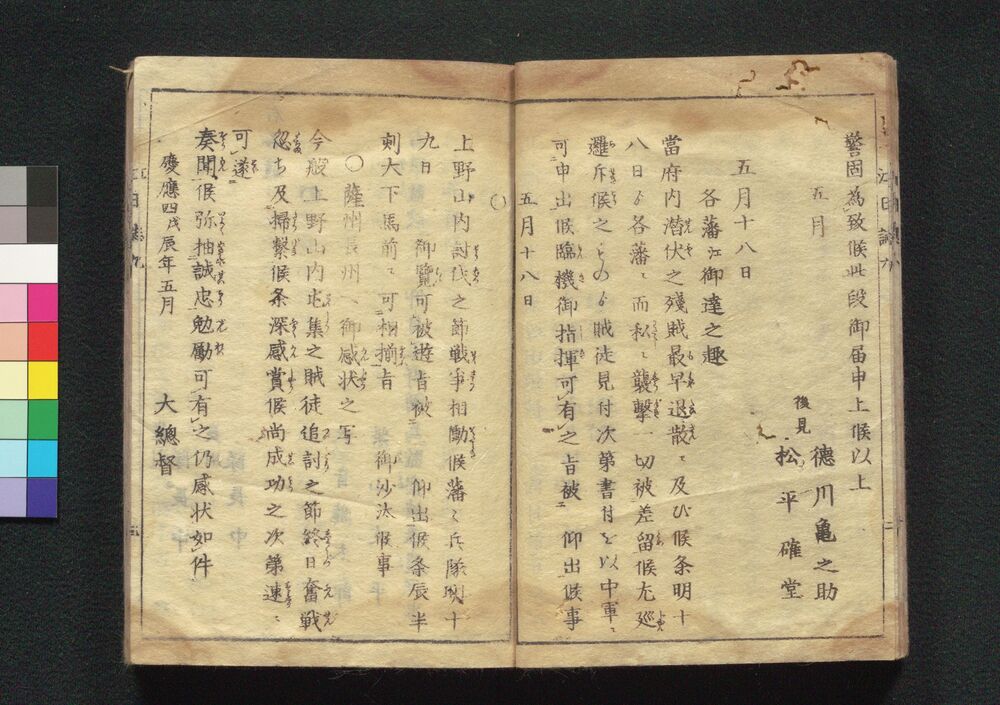 警固為致候此段御届申上候以上
五月
徳川亀之助
後見
松平確堂
五月十八日
各藩江御達之趣
當府内潜伏之残賊最早退散ニ及び候条明十
八日ゟ各藩ニ而私ニ襲撃一切被差留候尤廵
邏斥候之ものゟ賊徒見付次第書付を以中軍ニ
可申出候臨機御指揮可有之旨被仰出候事
五月十八日
〇
上野山内討伐之節戦争相働候藩ニ兵隊明十
九日御覽可被遊旨被仰出候条辰半
刻大下馬前ニ可相揃旨御沙汰候事
〇薩州長州ヘ御感状之写
今般上野山内屯集之賊徒追討之節終日奮戦
忽ち及掃撃候条深感賞候尚成功之次第速ニ
可遂
奏聞候弥抽誠忠勉勵可有之仍感状如件
慶應四戊辰年五月
大總督
江日誌九